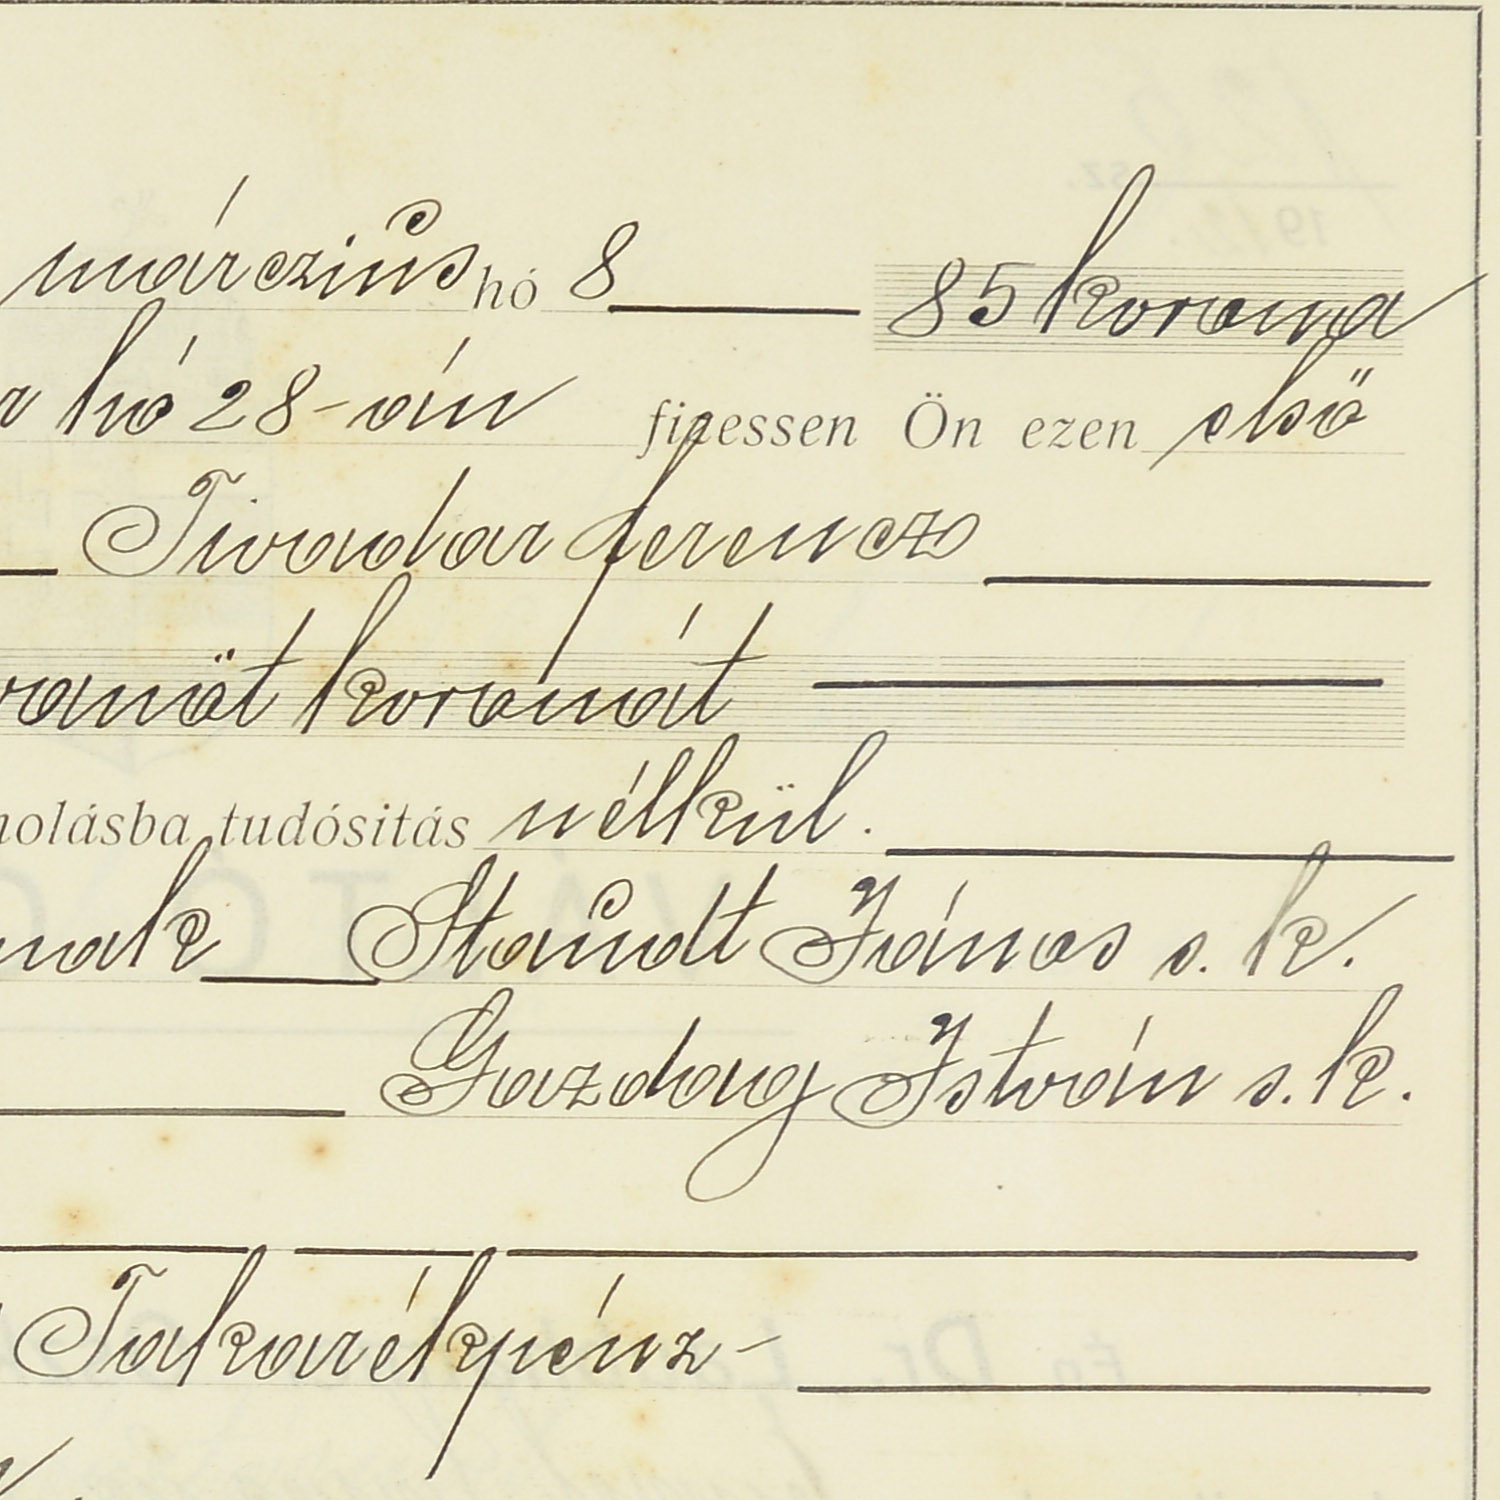 márczius hó 8 85 korona
hó 28-án fizessen Ön ezen első
Tivadar Ferencz
vanöt koronát
nolásba tudósitás nélkül.
nak Staudt János s. k.
Gazdag István s. k.
Takarékpénz-